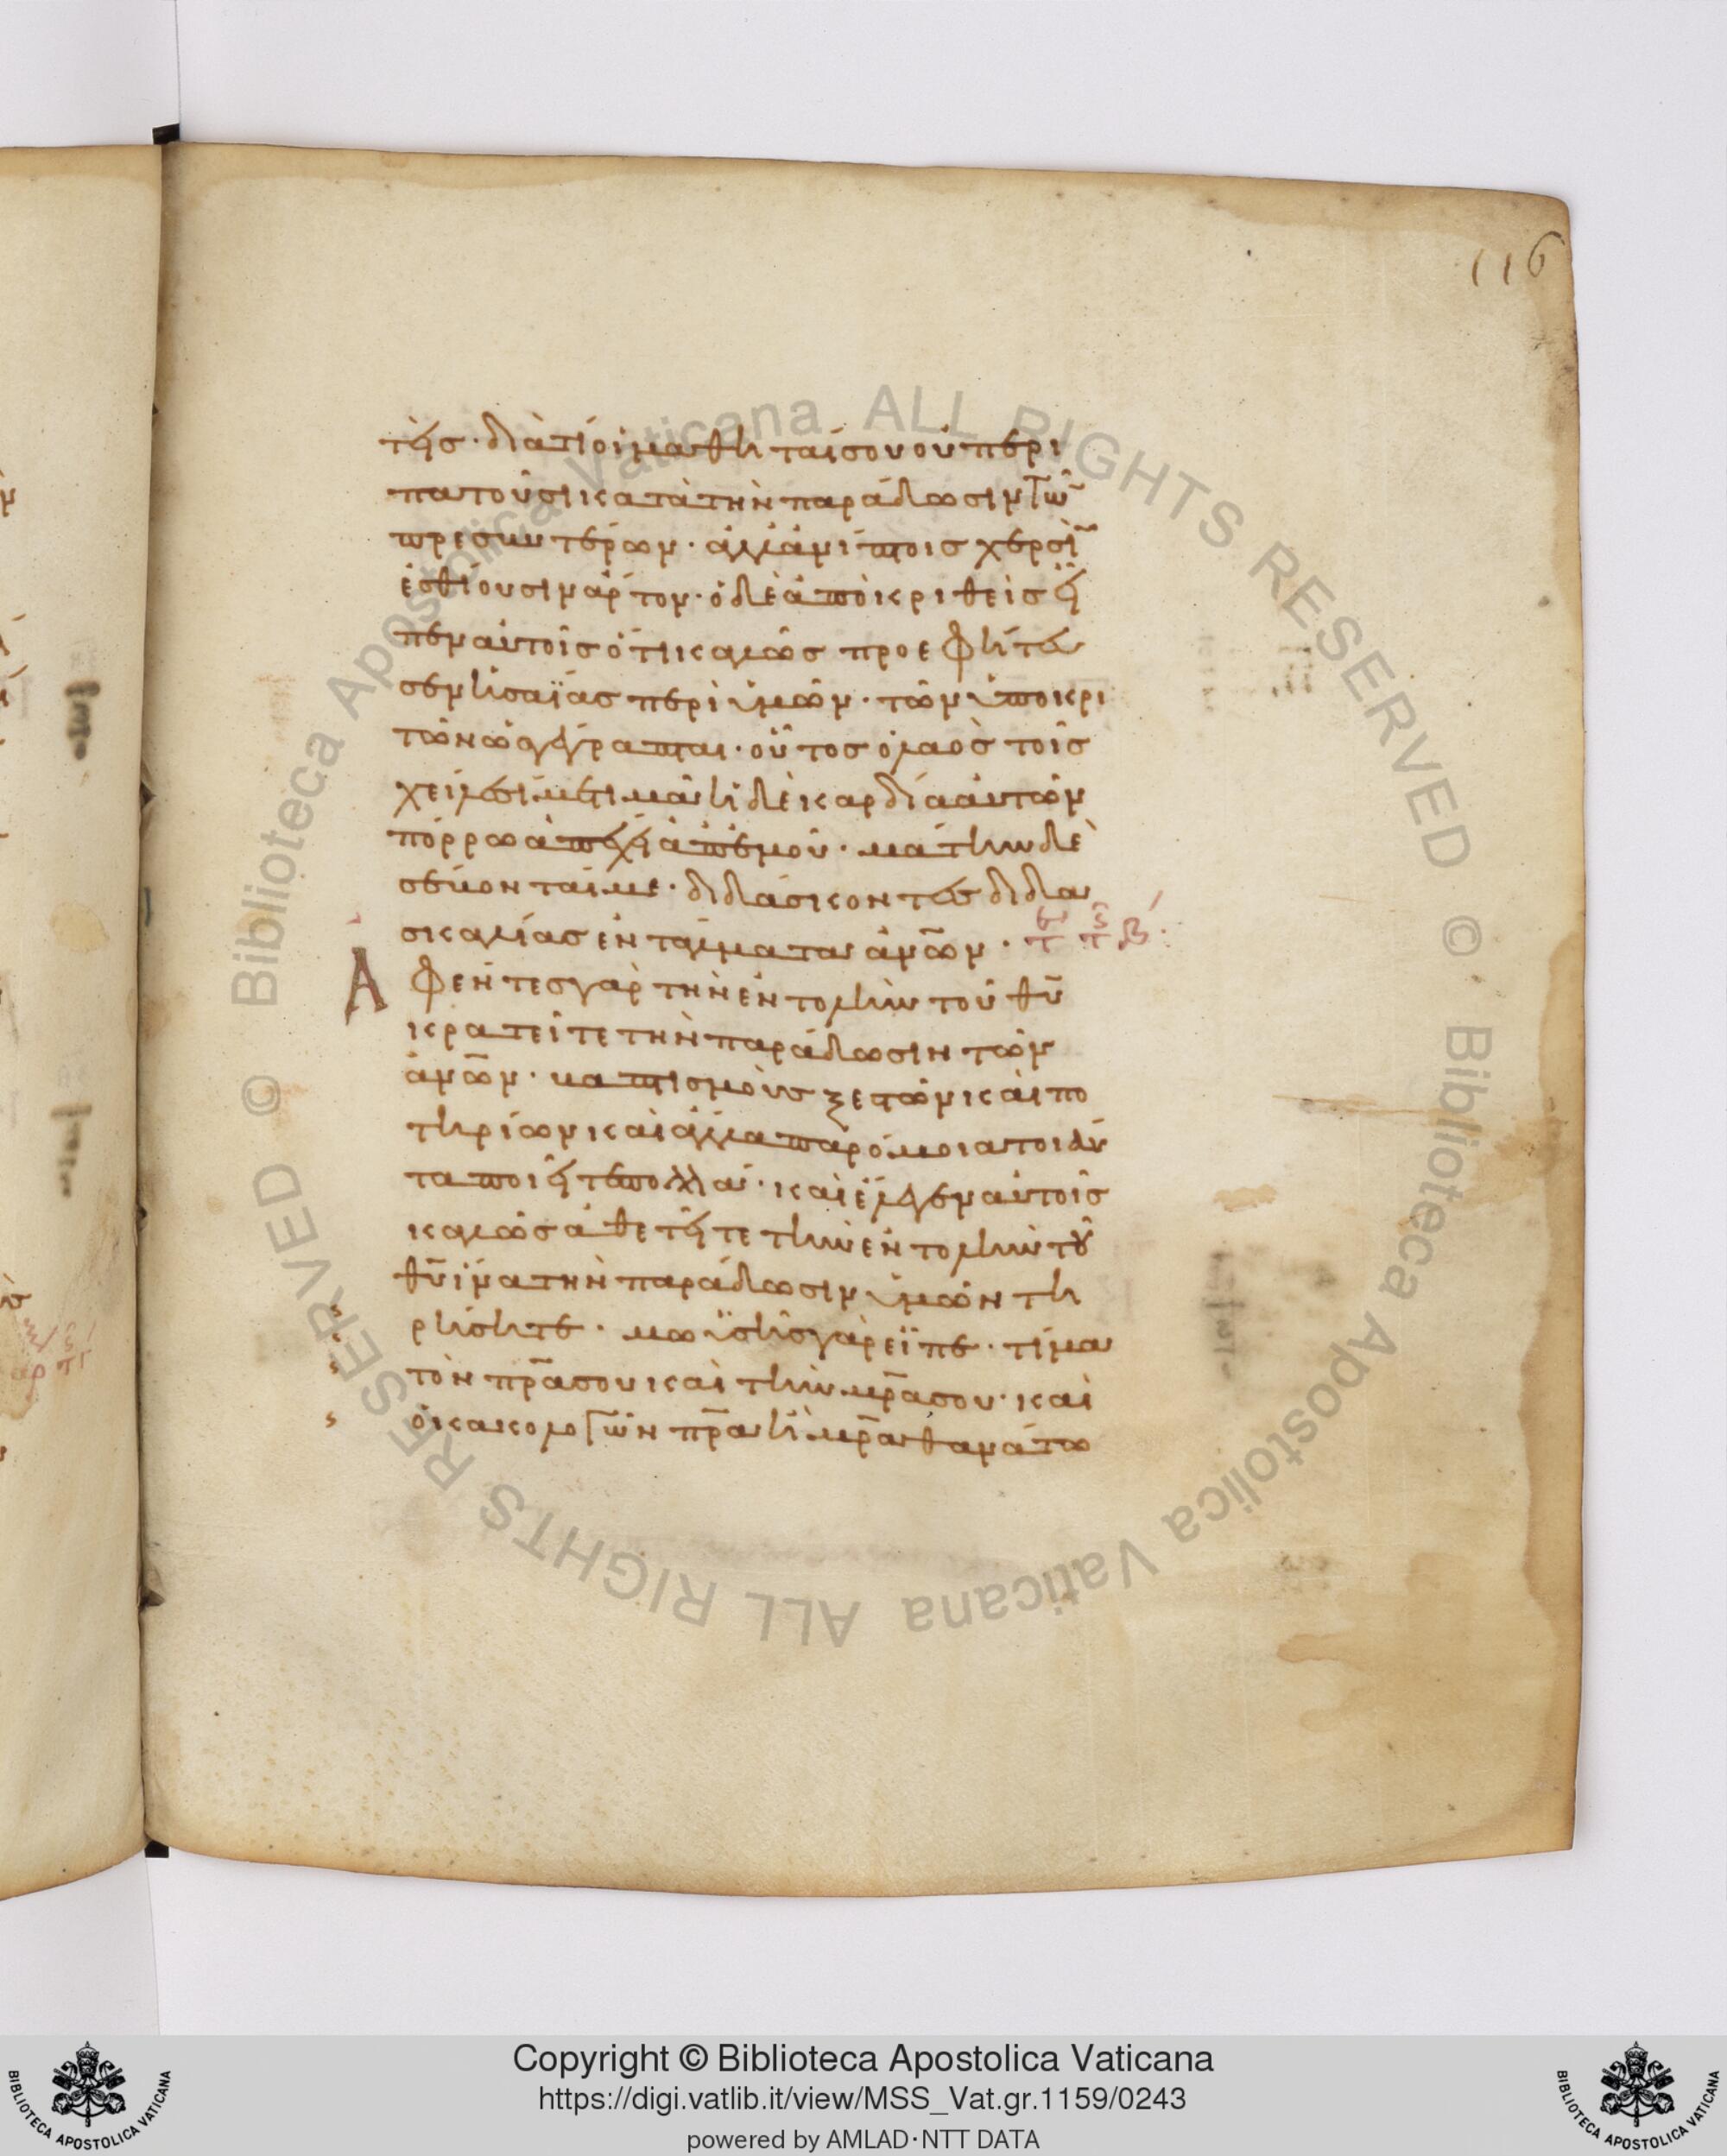 116
τεῖς· διατί οἱ μαθηταί σου οὐ περι
πατοῦσι κατὰ τὴν παράδοσιν τῶν
πρεσβυτέρων· ἀλλὰ ἀνίπτοις χερσὶν
ἐσθίουσιν ἄρτον· ὁ δὲ ἀποκριθεὶς εἶ
πεν αὐτοῖς ὅτι καλῶς προεφήτευ
σεν ἡσαΐας περὶ ὑμῶν· τῶν ὑποκρι
τῶν ὡς γέγραπται· οὗτος ὁ λαὸς τοῖς
χείλεσί με τιμᾶ ἡ δὲ καρδία αὐτῶν
πόρρω ἀπέχει ἀπ' ἐμοῦ· μάτην δὲ
σέβονταί με· διδάσκοντες διδα
σκαλίας ἐντάλματα ἀνῶν·
Ἀφέντες γὰρ τὴν ἐντολὴν τοῦ θυ
κρατεῖτε τὴν παράδοσιν τῶν
ἀνῶν· βαπτισμοὺς ξεστῶν καὶ πο
τηρίων καὶ ἄλλα παρόμοια τοιαῦ
τα ποιεῖτε πολλά· καὶ ἔλεγεν αὐτοῖς
καλῶς ἀθετεῖτε τὴν ἐντολὴν τοῦ
θυ ἵνα τὴν παράδοσιν ὑμῶν τη
ρήσητε· μωϋσῆς γὰρ εἶπε· τίμα
τὸν πρα σου καὶ τὴν μρα σου· καὶ
ὁ κακολογῶν πρα ἢ μρα θανάτω
Copyright © Biblioteca Apostolica Vaticana
https://digi.vatlib.it/view/MSS_Vat.gr.1159/0243
powered by AMLAD·NTT DATA
BIBLIOTECA APOSTOLICA VATICANA
BIBLIOTECA APOSTOLICA VATICANA
© Biblioteca Apostolica Vaticana ALL RIGHTS RESERVED
© Biblioteca Apostolica Vaticana ALL RIGHTS RESERVED